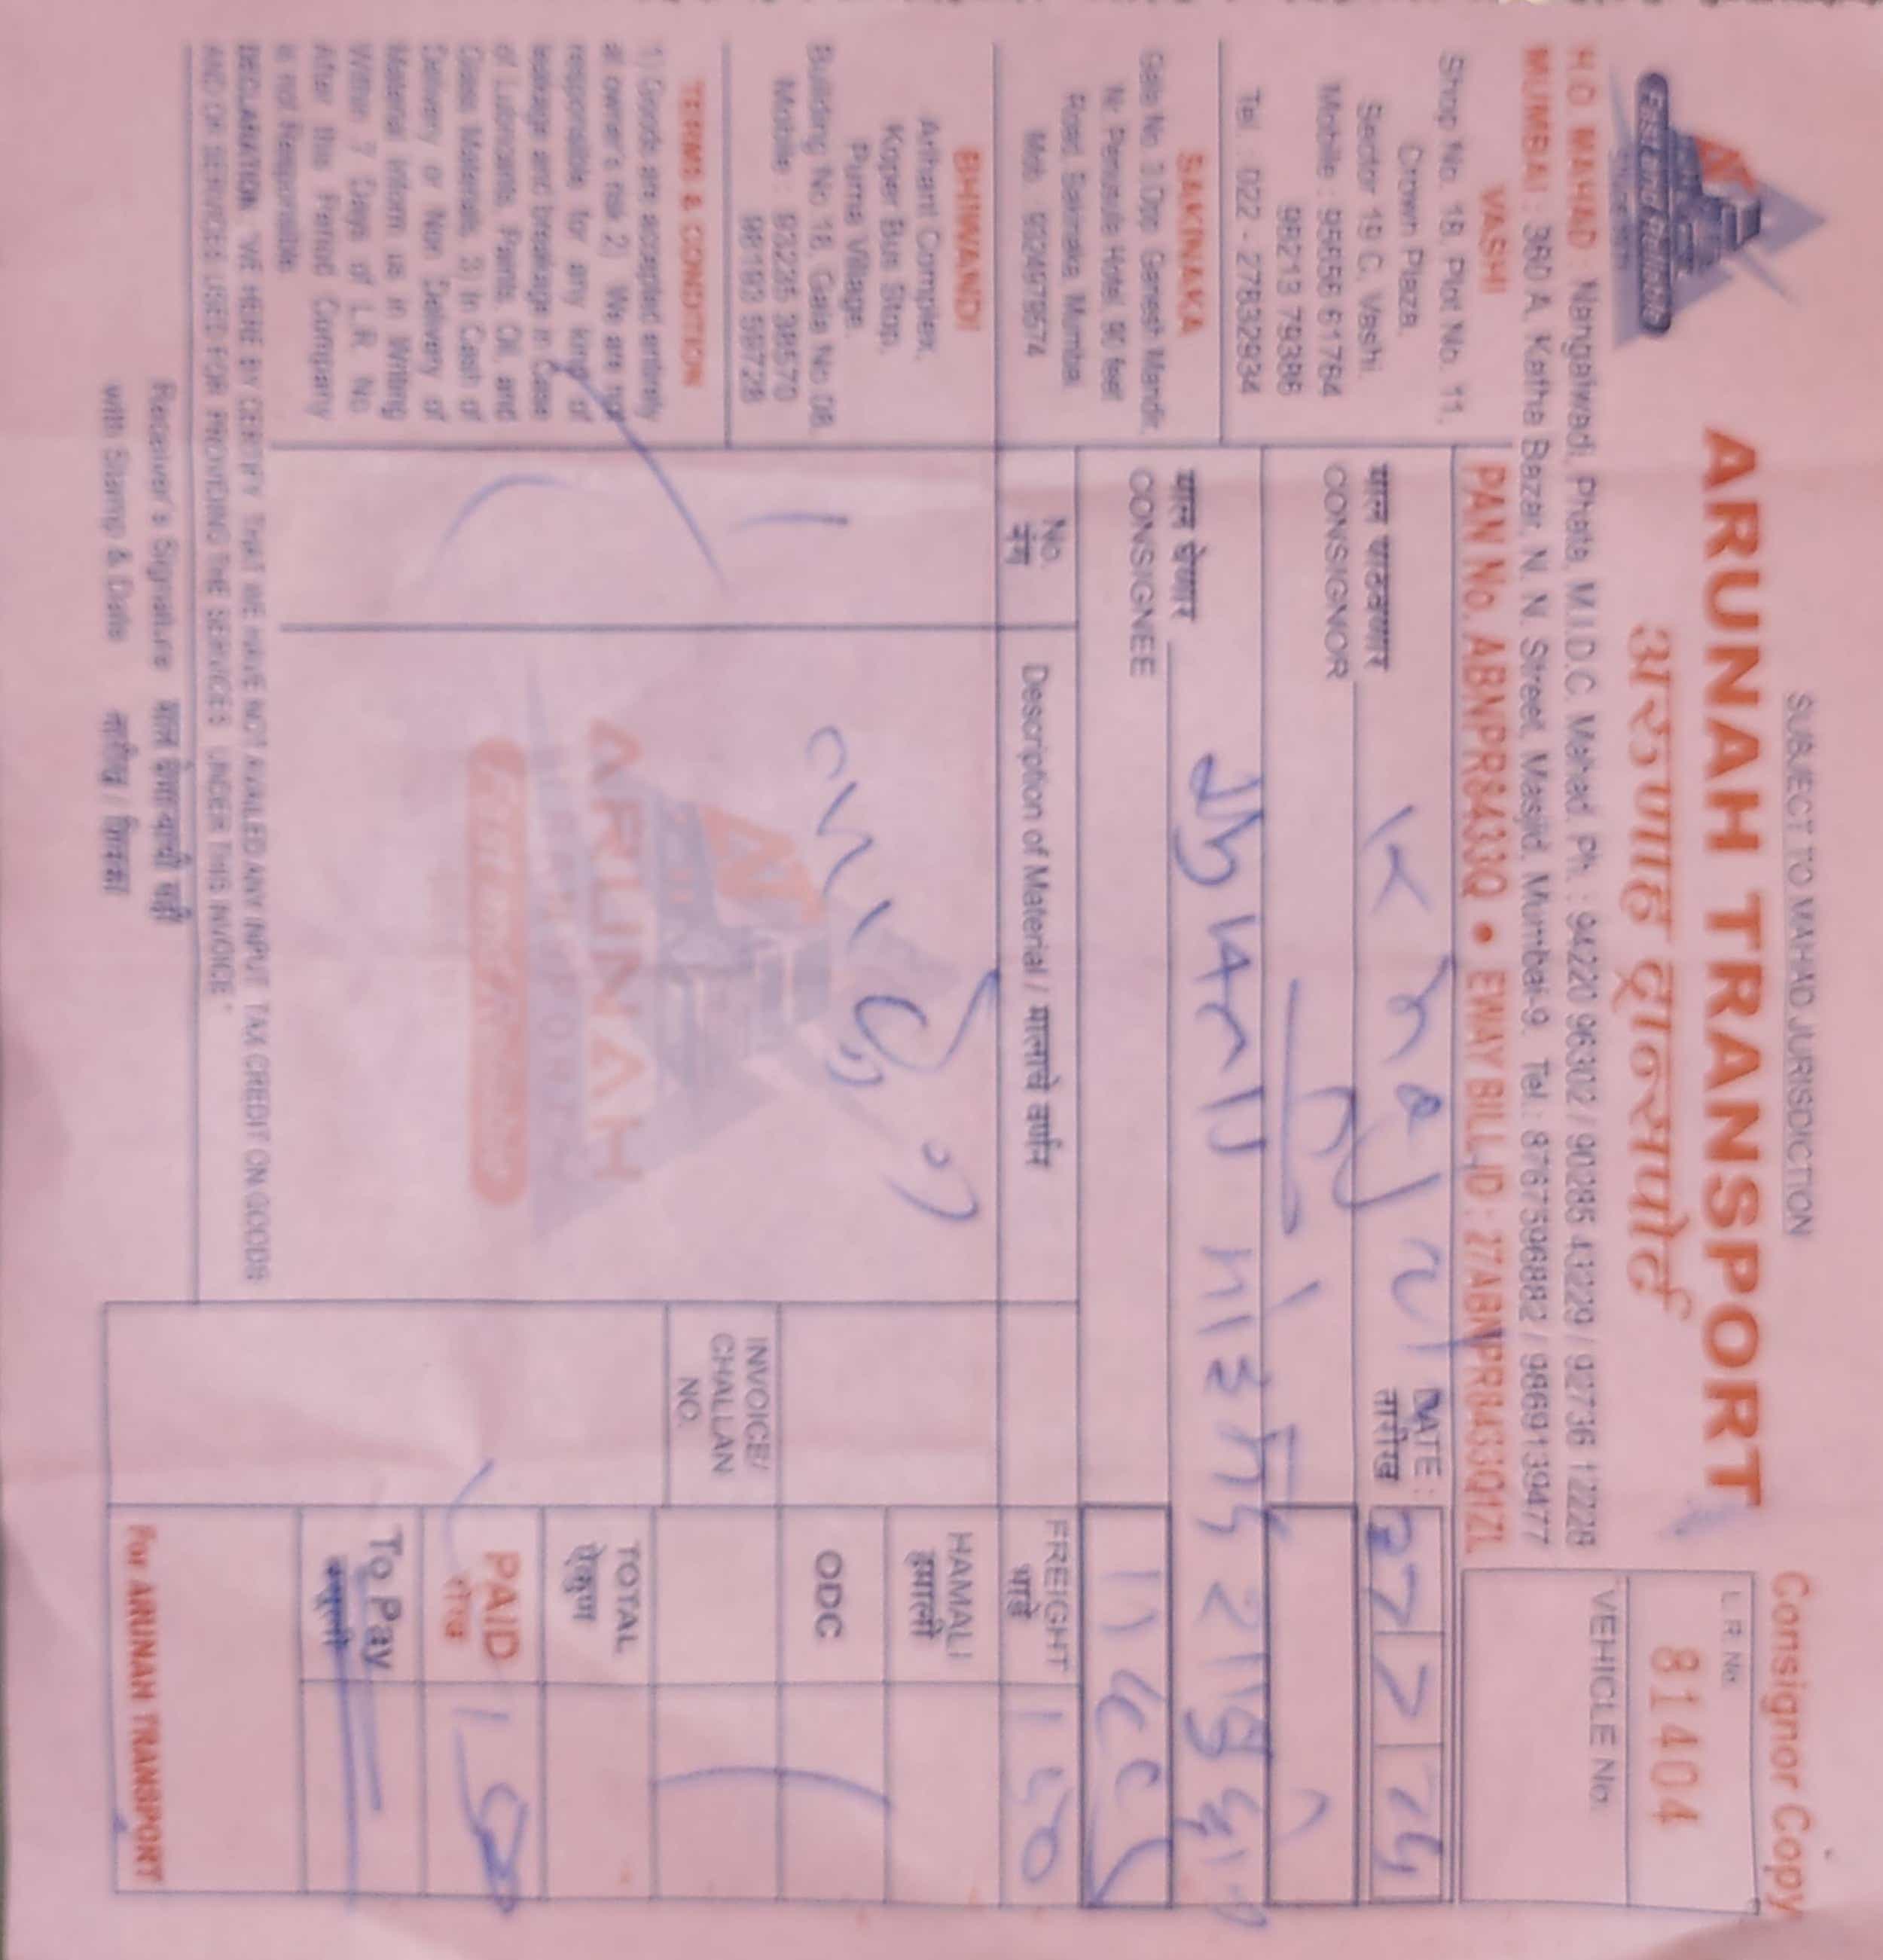 SUBJECT TO MAHAD JURISDICTION
Consignor Copy
ARUNAH TRANSPORT
अरुणाह ट्रान्सपोर्ट
Fast and Reliable
L.R. No.
81404
VEHICLE No.
H.O. MAHAD : Nangalwadi, Phata, M.I.D.C. Mahad. Ph. : 94220 96302 / 90285 43229 / 92736 12228
MUMBAI : 360 A, Katha Bazar, N. N. Street, Masjid, Mumbai-9. Tel.: 8767596882 / 9869139477
PAN No. ABNPR8433Q • EWAY BILL ID : 27ABNPR8433Q1ZL
VASHI
Shop No. 18, Plot No. 11,
Crown Plaza,
Sector 19 C, Vashi.
Mobile : 95556 61764
98213 79386
Tel. : 022 - 27832934
SAKINAKA
Gala No. 3 Opp. Ganesh Mandir,
Nr. Peninsula Hotel, 90 feet
Road, Sakinaka, Mumbai.
Mob. : 9324979574
BHIWANDI
Arihant Complex,
Koper Bus Stop,
Purna Village,
Building No 18, Gala No 08,
Mobile : 93225 38570
98193 59728
TERMS & CONDITION
1) Goods are accepted entirely
at owner's risk 2) We are not
responsible for any kind of
leakage and breakage in Case
of Lubricants, Paints, Oil, and
Glass Materials. 3) In Cash of
Delivery or Non Delivery of
Material inform us in Writing
Within 7 Days of L.R. No
After this Period Company
is not Responsible
माल पाठवणार
CONSIGNOR
DATE :
तारीख
माल घेणार
CONSIGNEE
No.
नंग
Description of Material / मालाचे वर्णन
1
FREIGHT
भाडे
150
HAMALI
हमाली
ODC
INVOICE/
CHALLAN
NO.
TOTAL
ऐकूण
PAID
रोख
To Pay
वसूली
ARUNAH
TRANSPORT
Fast and Reliable
DECLARATION. "WE HERE BY CERTIFY THAT WE HAVE NOT AVAILED ANY INPUT TAX CREDIT ON GOODS
AND OF SERVICES USED FOR PROVIDING THE SERVICES UNDER THIS INVOICE"
Receiver's Signature माल घेणाऱ्याची सही
with Stamp & Date तारीख / शिक्का
For ARUNAH TRANSPORT